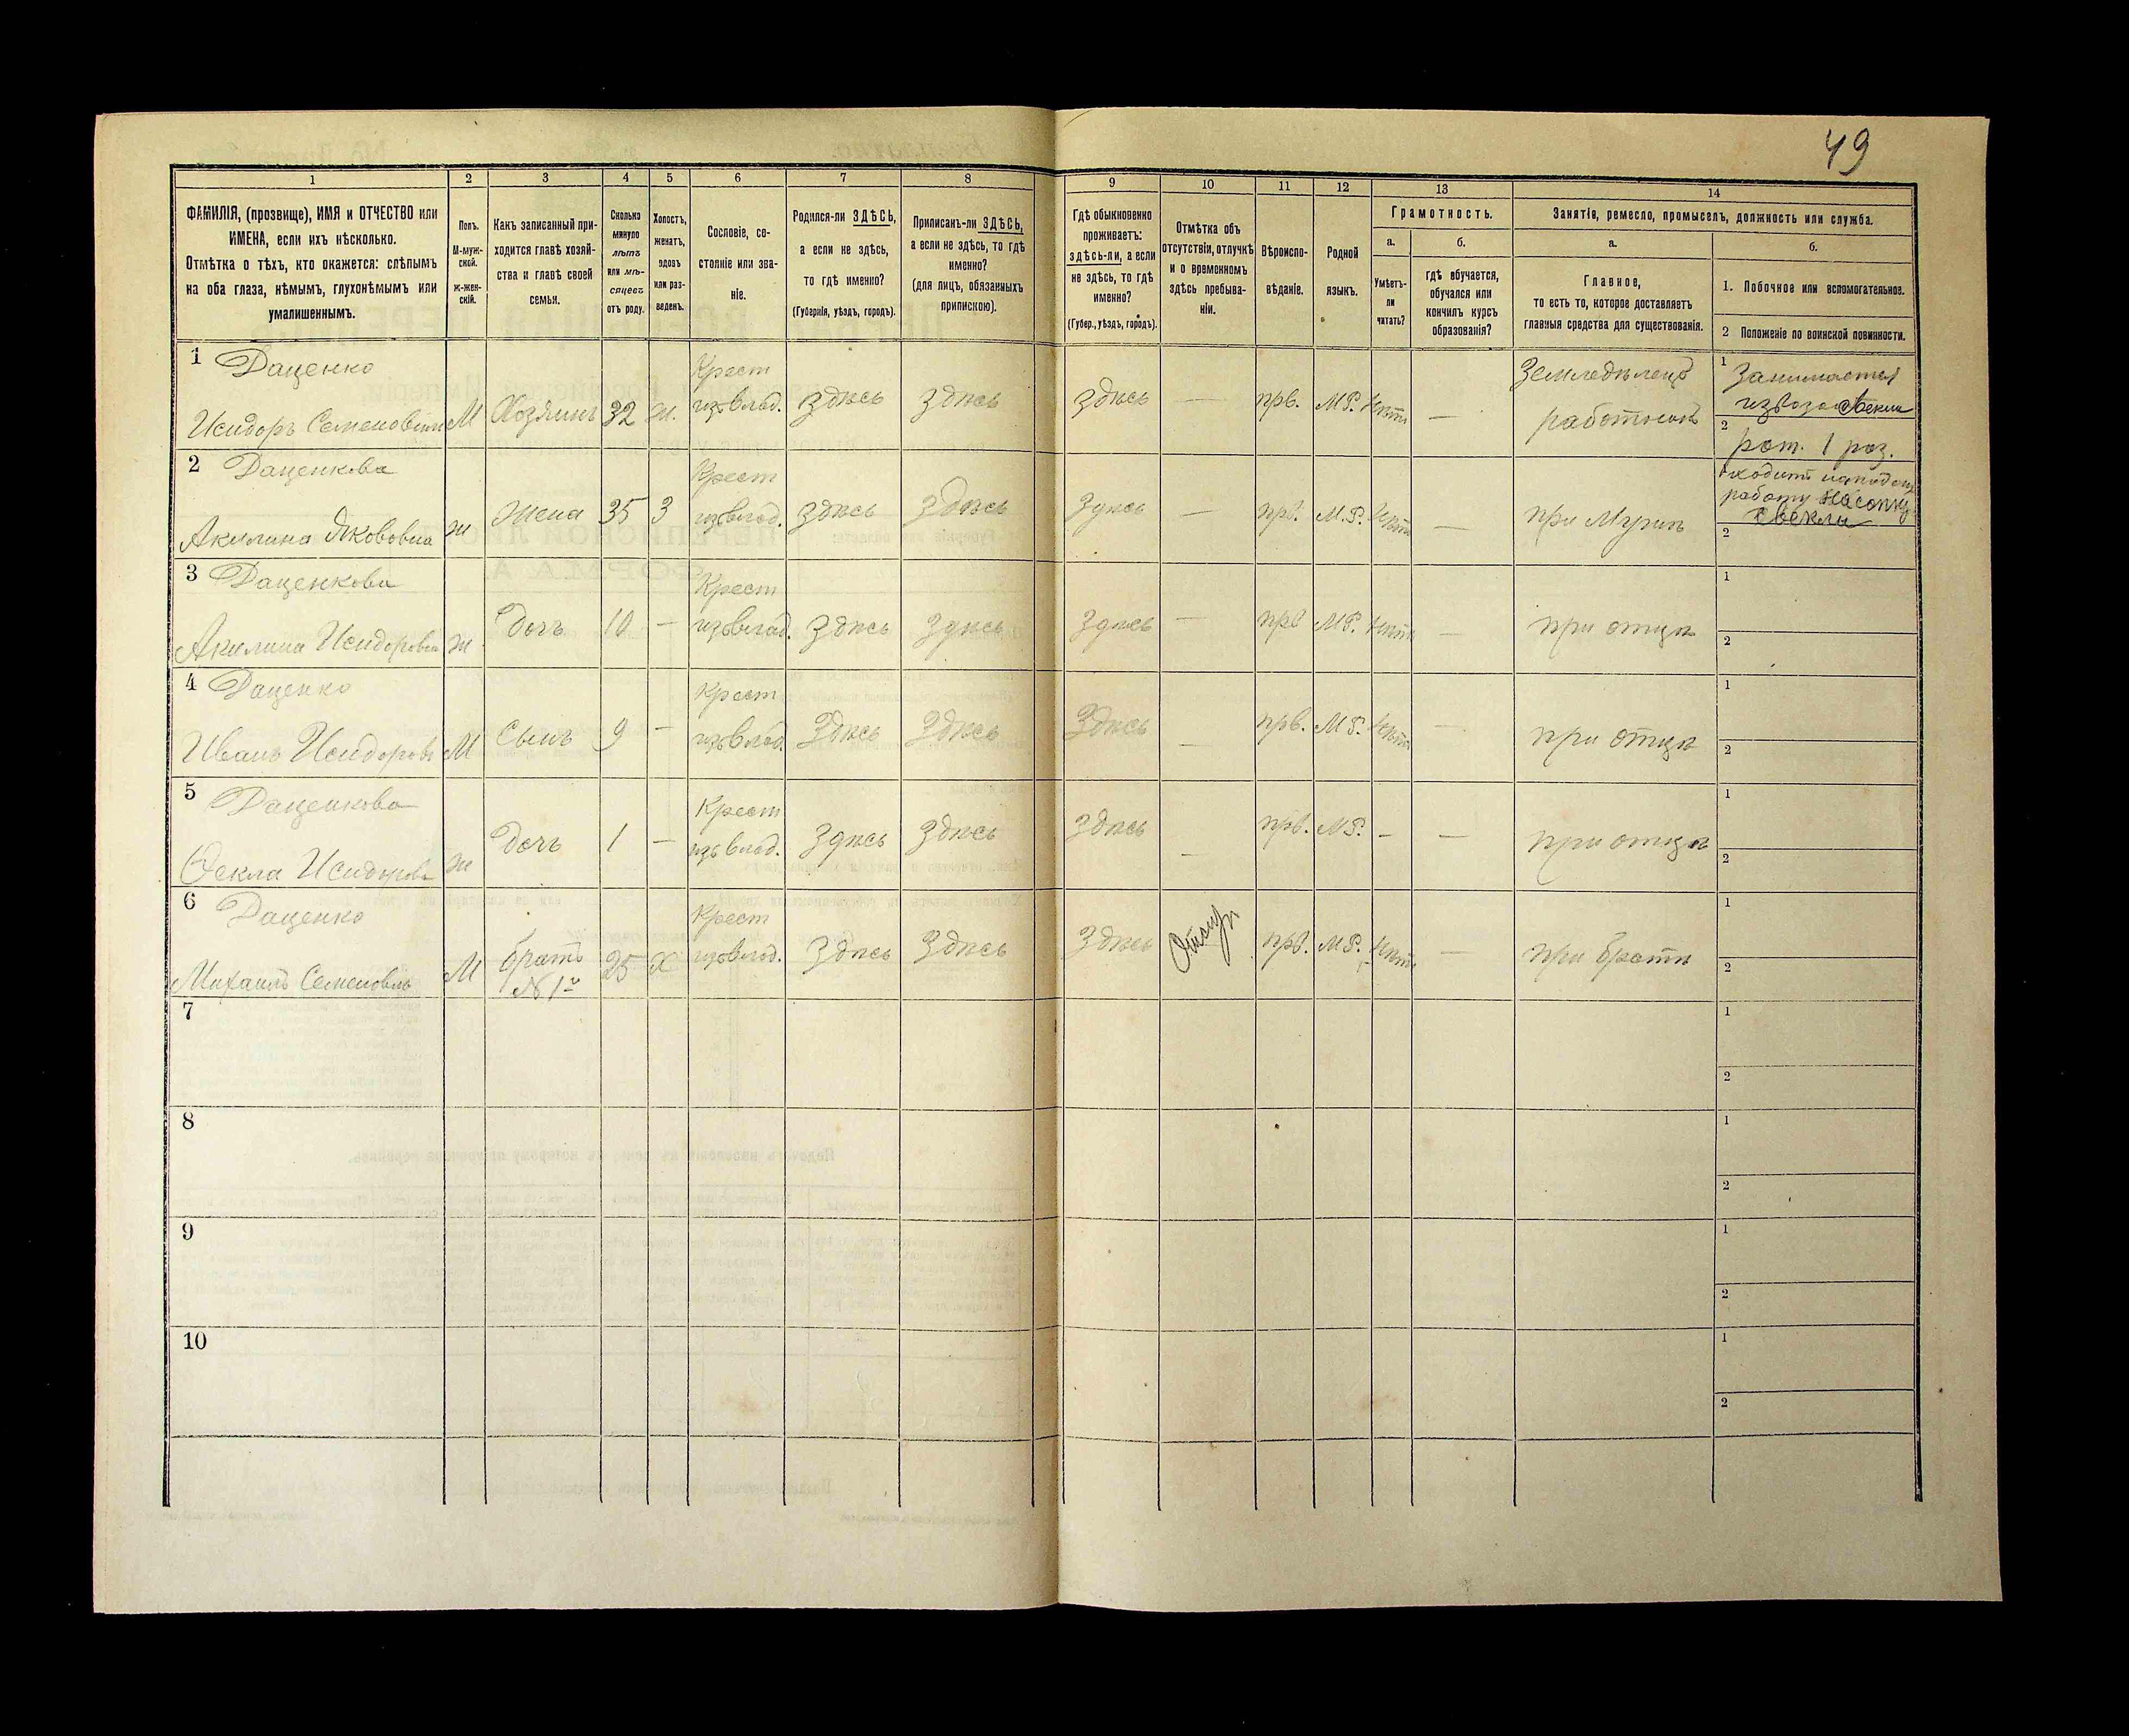 49
1 2 3 4 5 6 7 8 9 10 11 12 13 14
ФАМИЛІЯ, (прозвище), ИМЯ и ОТЧЕСТВО или
ИМЕНА, если ихъ нѣсколько.
Отмѣтка о тѣхъ, кто окажется: слѣпымъ
на оба глаза, нѣмымъ, глухонѣмымъ или
умалишеннымъ.
Полъ.
М-муж-
ской.
ж-жен-
скій.
Какъ записанный при-
ходится главѣ хозяй-
ства и главѣ своей
семьи.
Сколько
минуло
лѣтъ
или мѣ-
сяцевъ
отъ роду.
Холостъ,
женатъ,
вдовъ
или раз-
веденъ.
Сословіе, со-
стояніе или зва-
ніе.
Родился-ли ЗДѢСЬ,
а если не здѣсь,
то гдѣ именно?
(Губернія, уѣздъ, городъ).
Приписанъ-ли ЗДѢСЬ,
а если не здѣсь, то гдѣ
именно?
(для лицъ, обязанныхъ
припискою).
Гдѣ обыкновенно
проживаетъ:
здѣсь-ли, а если
не здѣсь, то гдѣ
именно?
(Губер., уѣздъ, городъ).
Отмѣтка объ
отсутствіи, отлучкѣ
и о временномъ
здѣсь пребыва-
ніи.
Вѣроиспо-
вѣданіе.
Родной
языкъ.
Грамотность.
а.
Умѣетъ-
ли
читать?
б.
гдѣ обучается,
обучался или
кончилъ курсъ
образованія?
Занятіе, ремесло, промыселъ, должность или служба.
а.
Главное,
то есть то, которое доставляетъ
главныя средства для существованія.
б.
1. Побочное или вспомогательное.
2 Положеніе по воинской повинности.
1 Даценко Крест Земледѣлецъ 1 Занимается
Исидоръ Семеновичъ М Хозяинъ 32 ж. изъ влад. здѣсь здѣсь здѣсь — прв. М.Р. нѣтъ — работникъ
2 рат. 1 раз.
2 Даценкова Крест 1 ходитъ
Акилина Якововна ж жена 35 З изъ влад. здѣсь здѣсь здѣсь — прв. М.Р. нѣтъ — при Мужѣ работу
свекли
2
3 Даценкова Крест 1
Акилина Исидоровна ж дочь 10 — изъ влад. здѣсь здѣсь здѣсь — прв М.Р. нѣтъ — при отцѣ 2
4 Даценко Крест 1
Иванъ Исидоровъ М Сынъ 9 — изъ влад. Здѣсь Здѣсь Здѣсь — прв. М.Р. нѣтъ — при отцѣ 2
5 Даценкова Крест 1
Ѳекла Исидорова ж дочь 1 — изъ влад. здѣсь здѣсь здѣсь — прв. М.Р. — — при отцѣ 2
6 Даценко Крест 1
Михаилъ Семеновъ М братъ 25 Х изъ влад. здѣсь Здѣсь Здѣсь прв. М.Р. нѣтъ — при братѣ 2
№ 1го
7 1
2
8 1
2
9 1
2
10 1
2